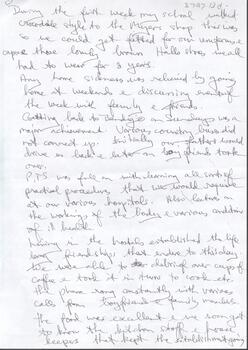 During the first week my school walked
crocodile style to the Meyers shop there was
So we could get fitted for our uniforms
capes those lovely brown Hallo shoes we all
had to wear for 3 years.
Any home sickness was relieved by going
home at weekends & discussing events of
the week with family & friends.
Getting back to on Sundays was a
major achievement. Various country buses did
not connect up. Initially our fathers would
drive us back & later on boy friends took
over.
P.T.S was full on with learning all sorts of
practical procedures that we would require
at our various hospitals. Also lectures on
the workings of the body & various conditions
of ill health.
Living in the hostels established the life
long friendships that endure to this day.
We were able to our cups of
coffee & took it in turn to cook etc.
The phone rang constantly with various
calls from boyfriends & family members.
The food was excellent & we soon got
to know the kitchen staff & house
keepers that kept the establishment going